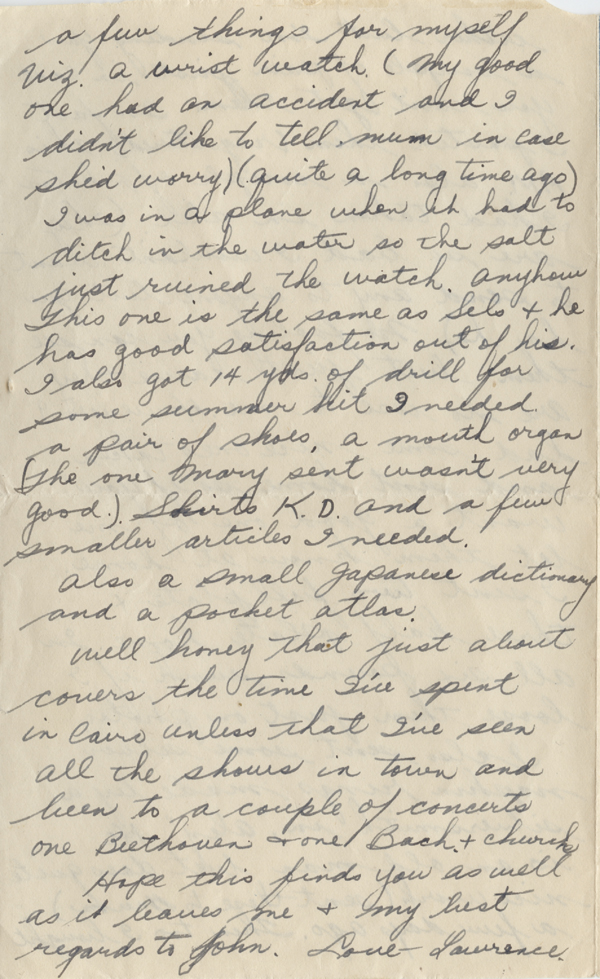 a few things for myself
Viz. a wrist watch. (My good
one had an accident and I
didn't like to tell mum in case
she'd worry) (quite a long time ago)
I was in a plane when it had to
ditch in the water so the salt
just ruined the watch. Anyhow
This one is the same as Sels + he
has good satisfaction out of his.
I also got 14 yds. of drill for
some summer kit I needed.
a pair of shoes, a mouth organ
(The one Mary sent wasn't very
good.). Shirts K.D. and a few
smaller articles I needed.
Also a small Japanese dictionary
and a pocket atlas.
Well honey that just about
covers the time I've spent
in Cairo unless that I've seen
all the shows in town and
been to a couple of concerts
one Beethoven + one Bach. + church
Hope this finds you as well
as it leaves me + my best
regards to John. Love Lawrence.